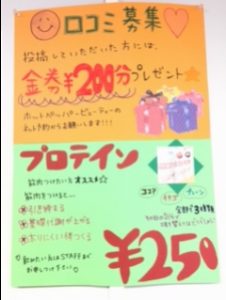 口コミ募集♡
投稿していただいた方には、
金券¥200分プレゼント☆
ホットペッパービューティーの
ネット予約からお願いします!!!
プロテイン
筋肉つけたい方オススメ☆
筋肉をつけると…
引き締まる
基礎代謝が上がる
太りにくい体つくる
飲みたい方はSTAFFが
お申しつけ下さい
ココア
イチゴ
プレーン
全部で3種類
¥250